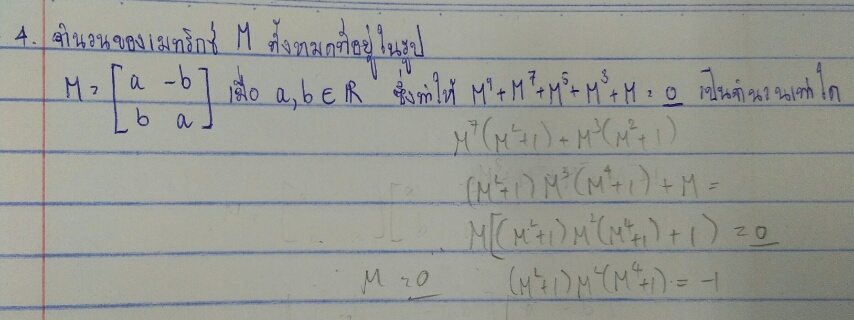 4. จำนวนของเมทริกซ์ M ทั้งหมดที่อยู่ในรูป
M = [a -b
b a] เมื่อ a,b ∈ R ซึ่งทำให้ M⁹+M⁷+M⁵+M³+M = 0 เป็นจำนวนเท่าใด
M⁷(M²+1)+M³(M²+1)
(M²+1)M³(M⁴+1)+M =
M[(M²+1)M²(M⁴+1)+1) = 0
M = 0 (M²+1)M²(M⁴+1) = -1